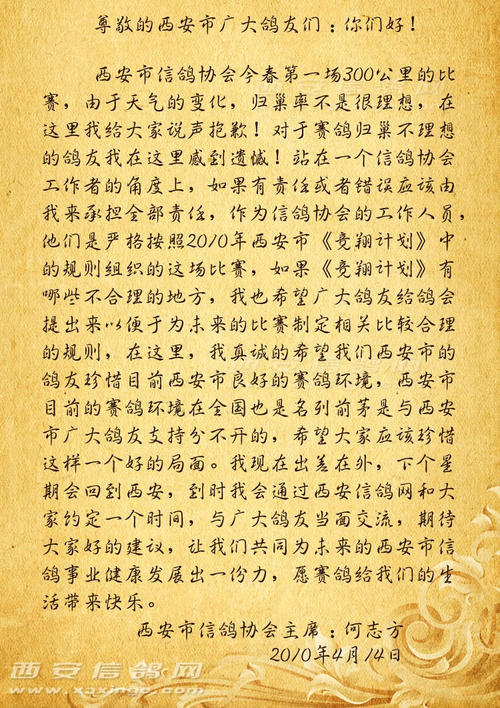 尊敬的西安市广大鸽友们：你们好！
西安市信鸽协会今春第一场300公里的比
赛，由于天气的变化，归巢率不是很理想，在
这里我给大家说声抱歉！对于赛鸽归巢不理想
的鸽友我在这里感到遗憾！站在一个信鸽协会
工作者的角度上，如果有责任或者错误应该由
我来承担全部责任，作为信鸽协会的工作人员，
他们是严格按照2010年西安市《竞翔计划》中
的规则组织的这场比赛，如果《竞翔计划》有
哪些不合理的地方，我也希望广大鸽友给鸽会
提出来以便于为未来的比赛制定相关比较合理
的规则，在这里，我真诚的希望我们西安市的
鸽友珍惜目前西安市良好的赛鸽环境，西安市
目前的赛鸽环境在全国也是名列前茅是与西安
市广大鸽友支持分不开的，希望大家应该珍惜
这样一个好的局面。我现在出差在外，下个星
期会回到西安，到时我会通过西安信鸽网和大
家约定一个时间，与广大鸽友当面交流，期待
大家好的建议，让我们共同为未来的西安市信
鸽事业健康发展出一份力，愿赛鸽给我们的生
活带来快乐。
西安市信鸽协会主席：何志方
2010年4月14日
西安信鸽网
www.xaxinge.com